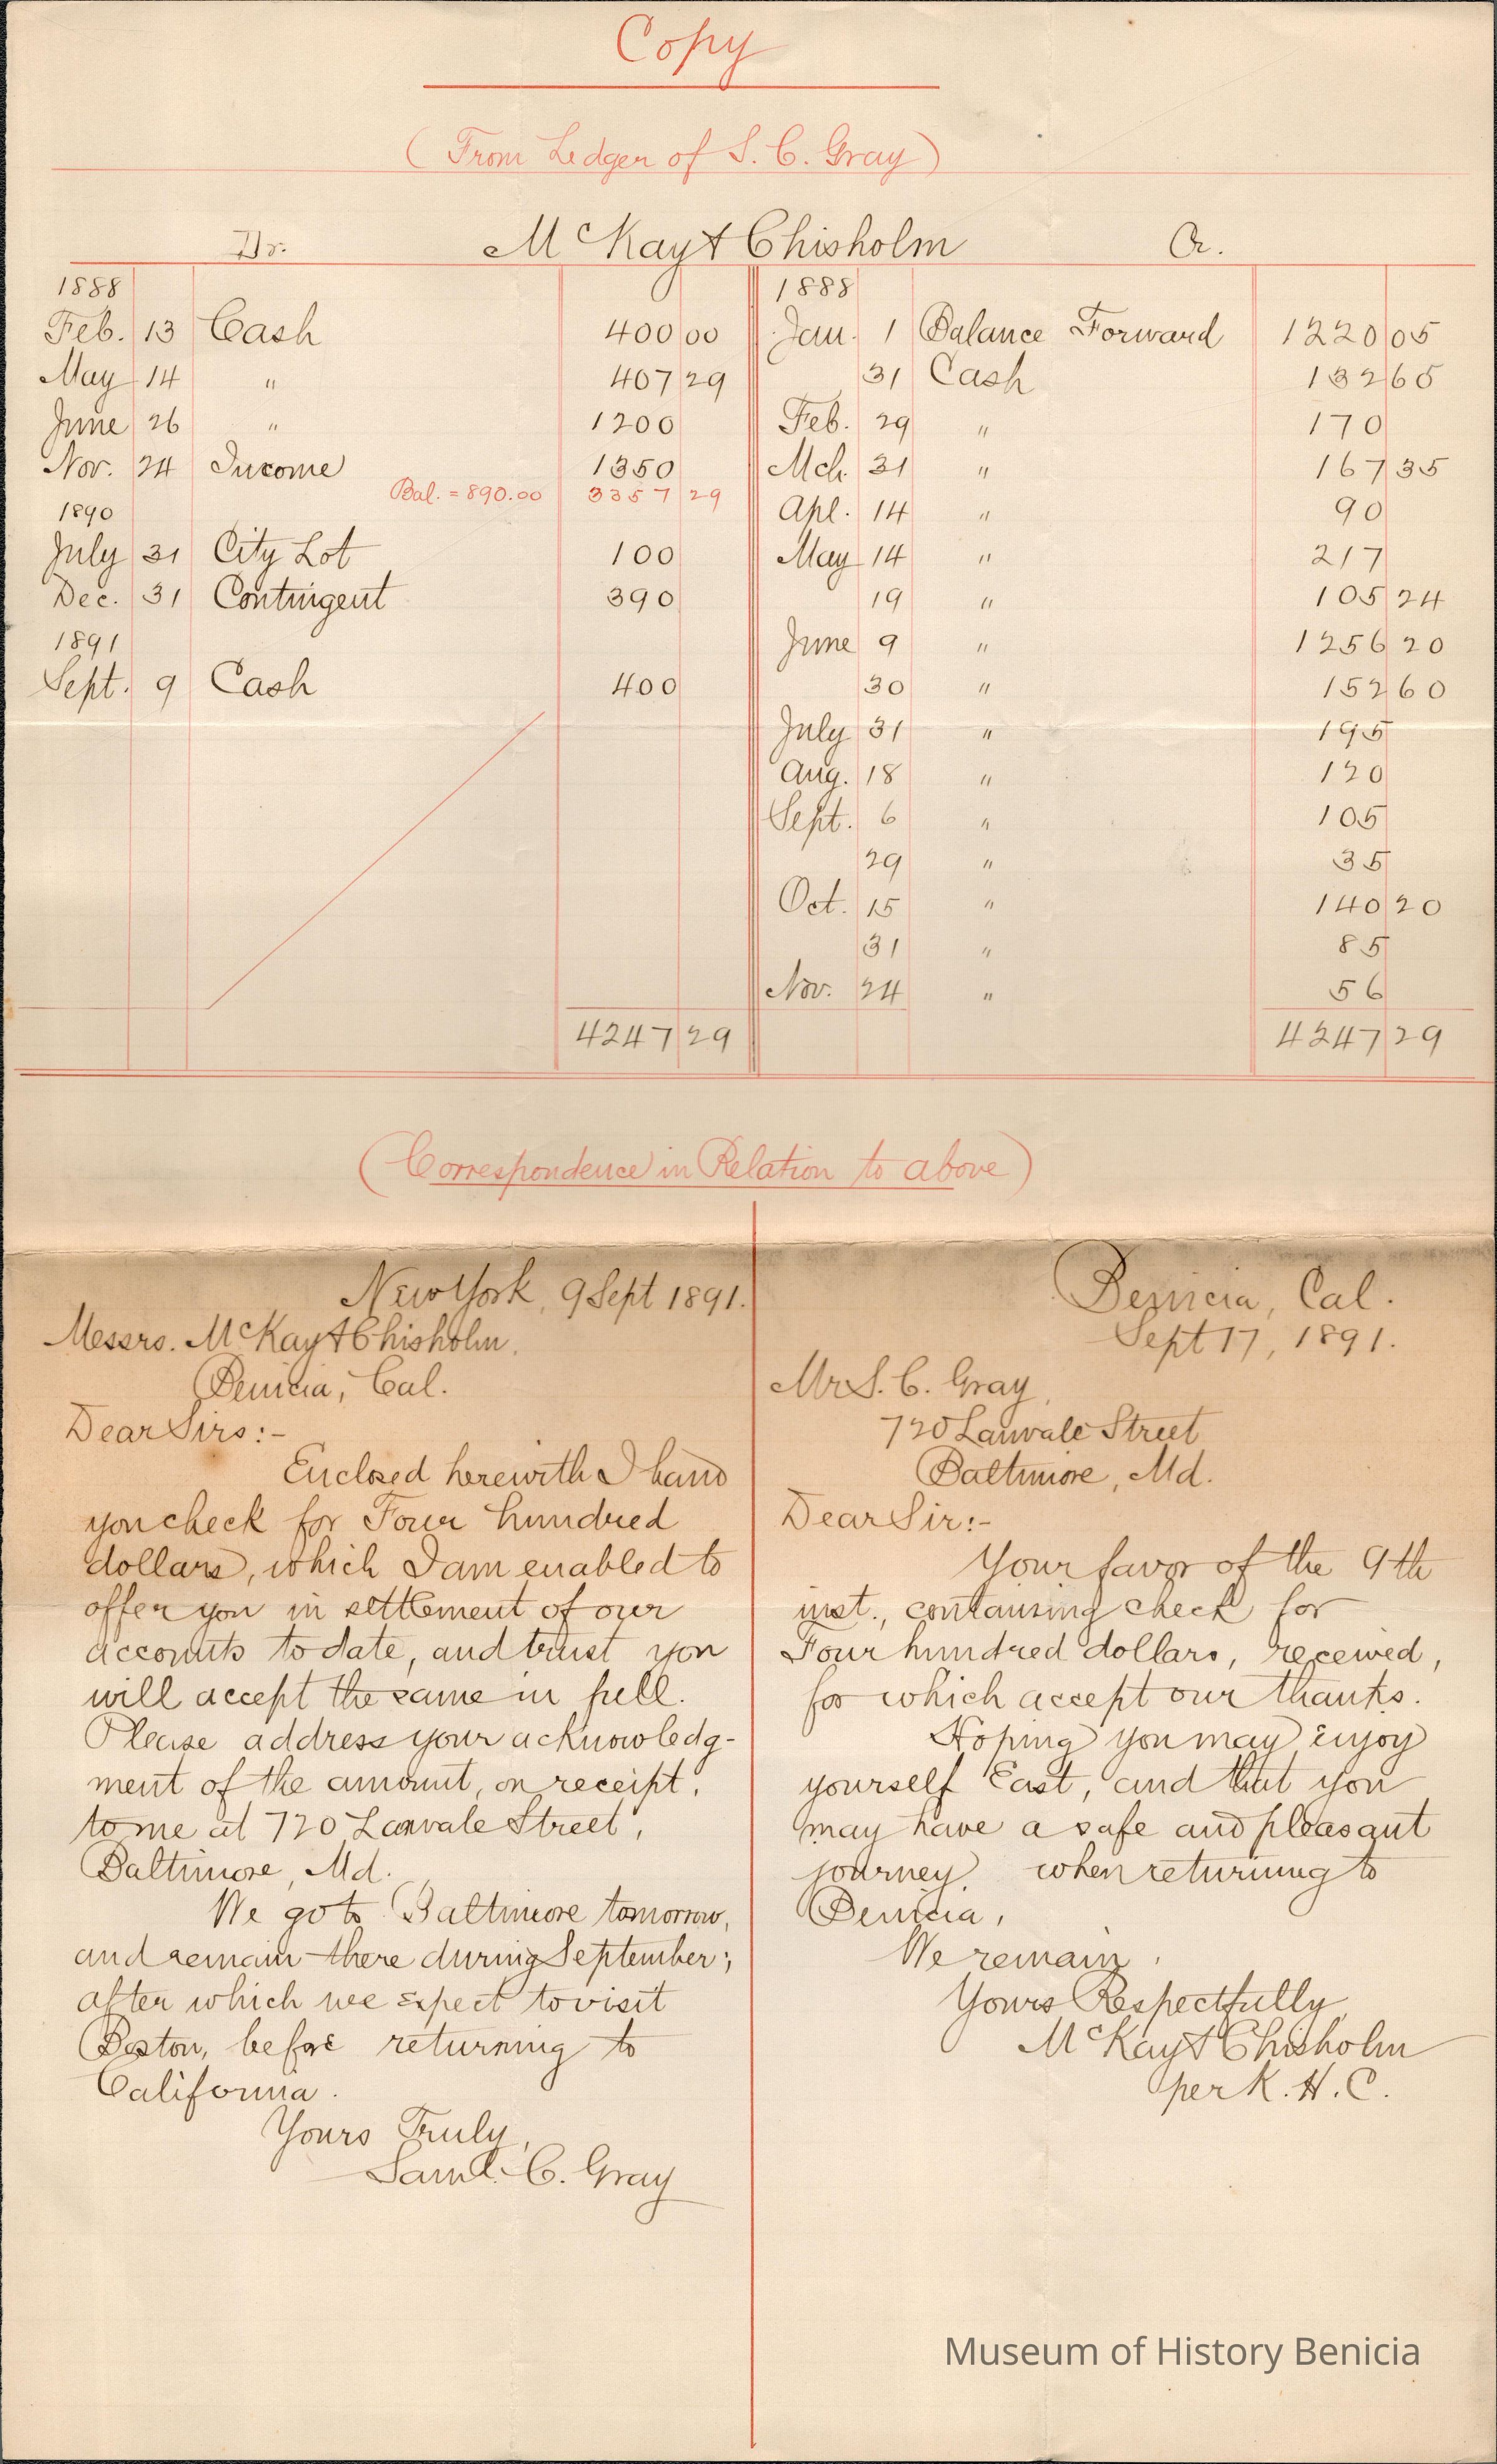 Copy
(From Ledger of S. C. Gray)
Dr. McKay & Chisholm Cr.
1888
Feb. 13 Cash 400 00
May 14 " 407 29
June 26 " 1200
Nov. 24 Income 1350
Bal. = 890.00 3357 29
1890
July 31 City Lot 100
Dec. 31 Contingent 390
1891
Sept. 9 Cash 400
4247 29
1888
Jan. 1 Balance Forward 1220 05
31 Cash 132 65
Feb. 29 " 170
Mch. 31 " 167 35
Apl. 14 " 90
May 14 " 217
19 " 105 24
June 9 " 1256 20
30 " 152 60
July 31 " 195
Aug. 18 " 120
Sept. 6 " 105
29 " 35
Oct. 15 " 140 20
31 " 85
Nov. 24 " 56
4247 29
(Correspondence in Relation to above)
New York, 9 Sept 1891.
Messrs. McKay & Chisholm,
Benicia, Cal.
Dear Sirs:-
Enclosed herewith I hand
you check for Four hundred
dollars, which I am enabled to
offer you in settlement of our
accounts to date, and trust you
will accept the same in full.
Please address your acknowledg-
ment of the amount, on receipt,
to me at 720 Lanvale Street,
Baltimore, Md.
We go to Baltimore tomorrow,
and remain there during September;
after which we expect to visit
Boston, before returning to
California.
Yours Truly,
Saml. C. Gray
Benicia, Cal.
Sept 17, 1891.
Mr S. C. Gray,
720 Lanvale Street
Baltimore, Md.
Dear Sir:-
Your favor of the 9th
inst., containing check for
Four hundred dollars, received,
for which accept our thanks.
Hoping you may enjoy
yourself East, and that you
may have a safe and pleasant
journey, when returning to
Benicia,
We remain,
Yours Respectfully,
McKay & Chisholm
per K. H. C.
Museum of History Benicia